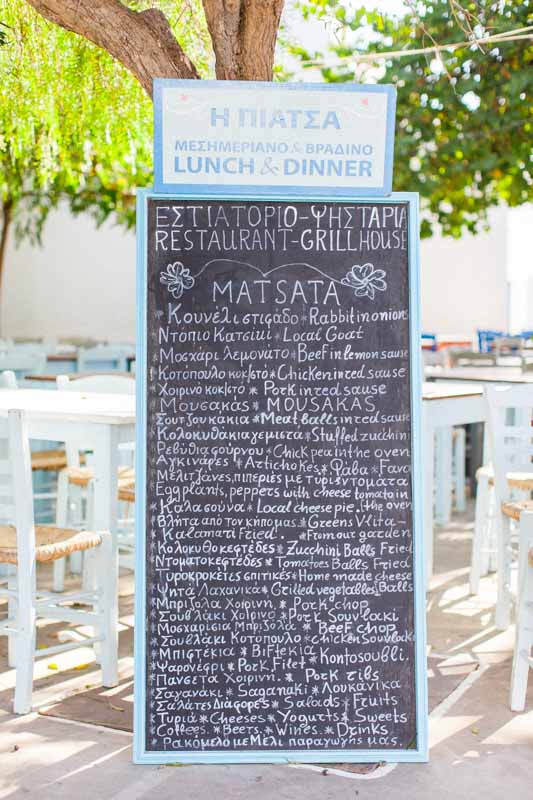 Η ΠΙΑΤΣΑ
ΜΕΣΗΜΕΡΙΑΝΟ & ΒΡΑΔΙΝΟ
LUNCH & DINNER
ΕΣΤΙΑΤΟΡΙΟ-ΨΗΣΤΑΡΙΑ
RESTAURANT-GRILLHOUSE
MATSATA
* Κουνέλι στιφάδο * Rabbit in onions
Ντόπιο Κατσίκι * Local Goat
* Μοσχάρι λεμονάτο * Beef in lemon sause
Κοτόπουλο κοκ/στο * Chicken in red sause
Χοιρινό κοκ/στο * Pork in red sause
Μουσακάς * MOUSAKAS
Σουτζουκάκια * Meat balls in red sause
Κολοκυθάκια γεμιστά * Stuffed zucchini
Ρεβύθια φούρνου * Chick pea in the oven
Αγκινάρες * Artichokes * Φάβα * Fava
Μελιτζάνες, πιπεριές με τυρι ντομάτα
Eggplants, peppers with cheese tomato in
* Καλασούνα * Local cheese pie. (the oven
Βλήτα από τον κήπο μας. * Greens Vlita -
Καλαμάρι * Fried. * From our garden
Κολοκυθοκεφτέδες * Zucchini Balls Fried
Ντοματοκεφτέδες * Tomatoes Balls Fried
Τυροκροκέτες σπιτικές * Home made cheese
Ψητά Λαχανικά * Grilled vegetables Balls
Μπριζόλα Χοιριν. * Pork chop
Σουβλάκι Χοιρινό * Pork Souvlaki
Μοσχαρίσια Μπριζόλα * Beef chop
* Σουβλάκι Κοτόπουλο * chicken Souvlaki
Μπιφτέκια * Biftekia * Kontosoubli.
Ψαρονέφρι * Pork Filet *
Πανσέτα Χοιριν. * Pork ribs
Σαγανάκι * Saganaki * Λουκάνικα
Σαλάτες Διάφορες * Salads * Fruits
Τυριά * Cheeses * Yogurts * Sweets
Coffees. * Beers. * Wines. * Drinks
* Ρακόμελο με Μέλι παραγωγής μας.